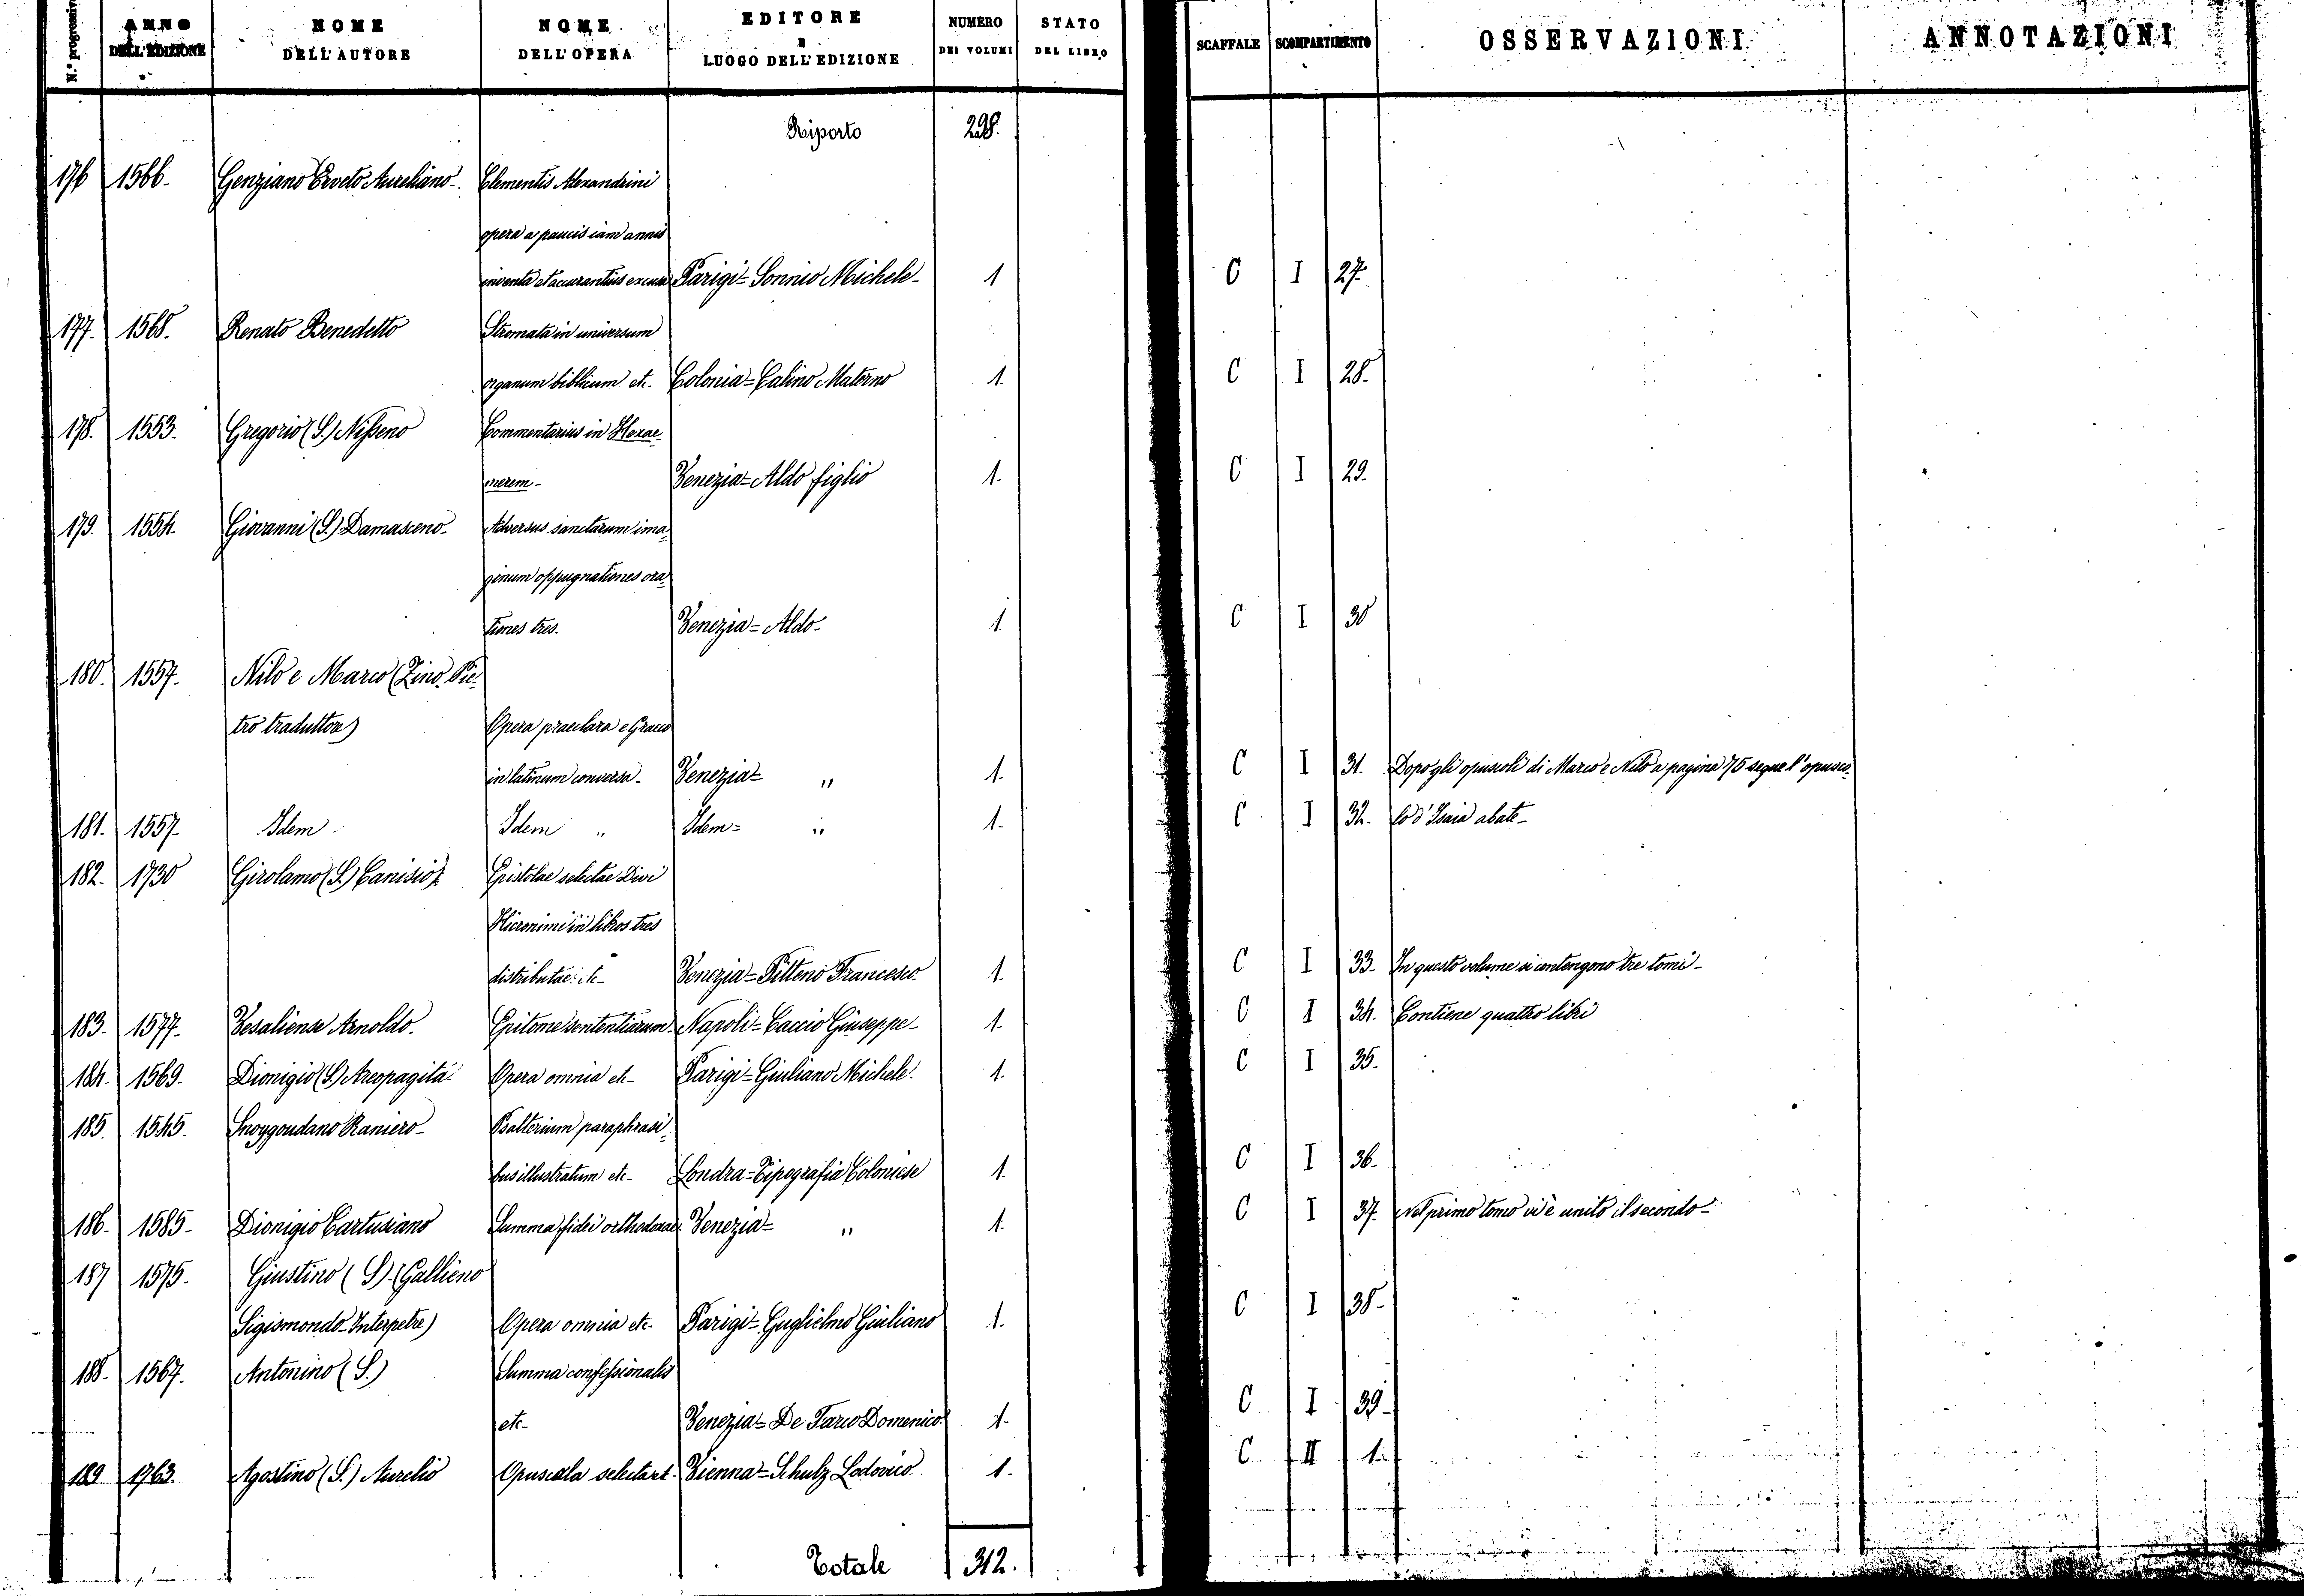 N.° progressivo ANNO DELL'EDIZIONE NOME DELL'AUTORE NOME DELL'OPERA EDITORE E LUOGO DELL'EDIZIONE NUMERO DEI VOLUMI STATO DEL LIBRO SCAFFALE SCOMPARTIMENTO OSSERVAZIONI ANNOTAZIONI
Riporto 298.
176 1566. Genziano Erveto Aureliano- Clementis Alexandrini
opera a paucis iam annis
inventa et accuratius excusa Parigi= Sonnio Michele- 1 C I 27.
177. 1568. Renato Benedetto Stromata in universum
organum biblium etc. Colonia= Calino Materno 1. C I 28.
178. 1553. Gregorio (S.) Nisseno Commentarius in Hexae-
merem- Venezia= Aldo figlio 1. C I 29.
179. 1554. Giovanni (S.) Damasceno- Adversus sanctarum ima-
ginum oppugnationes ora-
tiones tres. Venezia= Aldo- 1. C I 30
180. 1557. Nilo e Marco (Zino Pie-
tro traduttore) Opera praeclara e Graeco
in latinum conversa- Venezia= " 1. C I 31. Dopo gli opuscoli di Marco e Nilo a pagina 75 segue l'opusco-
181. 1557. Idem Idem " Idem= " 1. C I 32. lo d'Isaia abate-
182. 1730 Girolamo (S.) Canisio P. Epistolae selectae Divi
Hieronimi in libros tres
distributae. etc- Venezia= Pitteno Francesco. 1. C I 33. In questo volume si contengono tre tomi-
183. 1577. Vesaliense Arnoldo. Epitome sententiarum. Napoli= Caccio Giuseppe- 1. C I 34. Contiene quattro libri
184. 1569. Dionigio (S.) Areopagita- Opera omnia etc- Parigi= Giuliano Michele. 1. C I 35.
185. 1545. Snoygoudano Raniero- Psalterium paraphrasi-
bus illustratum etc- Londra= Tipografia Coloniese 1. C I 36.
186. 1585- Dionigio Cartusiano Summa fidei orthodoxae. Venezia= " 1. C I 37. Nel primo tomo vi è unito il secondo-
187 1575. Giustino (S.) (Gallieno
Sigismondo-Interpetre) Opera omnia etc- Parigi= Guglielmo Giuliano 1. C I 38-
188. 1567. Antonino (S.) Summa confessionalis
etc- Venezia= De Farco Domenico. 1. C I 39-
189 1763. Agostino (S.) Aurelio Opuscola selecta et. Vienna= Schulz Lodovico. 1. C II 1.
Totale 312.